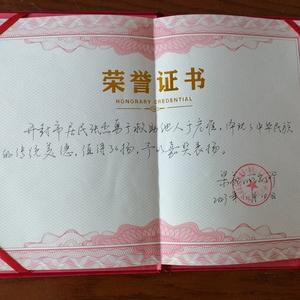 荣誉证书
HONORARY CREDENTIAL
开封市居民张杰勇于救助他人于危难，体现了中华民族
的传统美德，值得弘扬，予以嘉奖表扬。